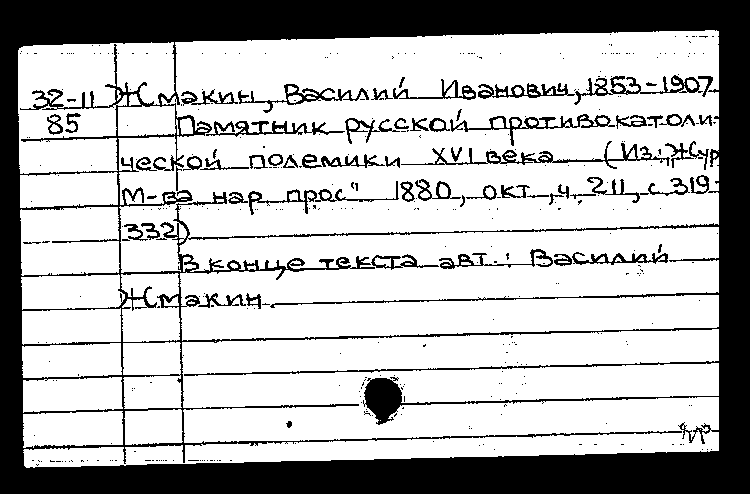 32-11 Жмакин, Василий Иванович, 1853-1907
85 Памятник русской противокатоли-
ческой полемики XVI века (Из: „Жур
М-ва нар прос" 1880, окт, ч. 211, с 319-
332)
В конце текста авт.: Василий
Жмакин.